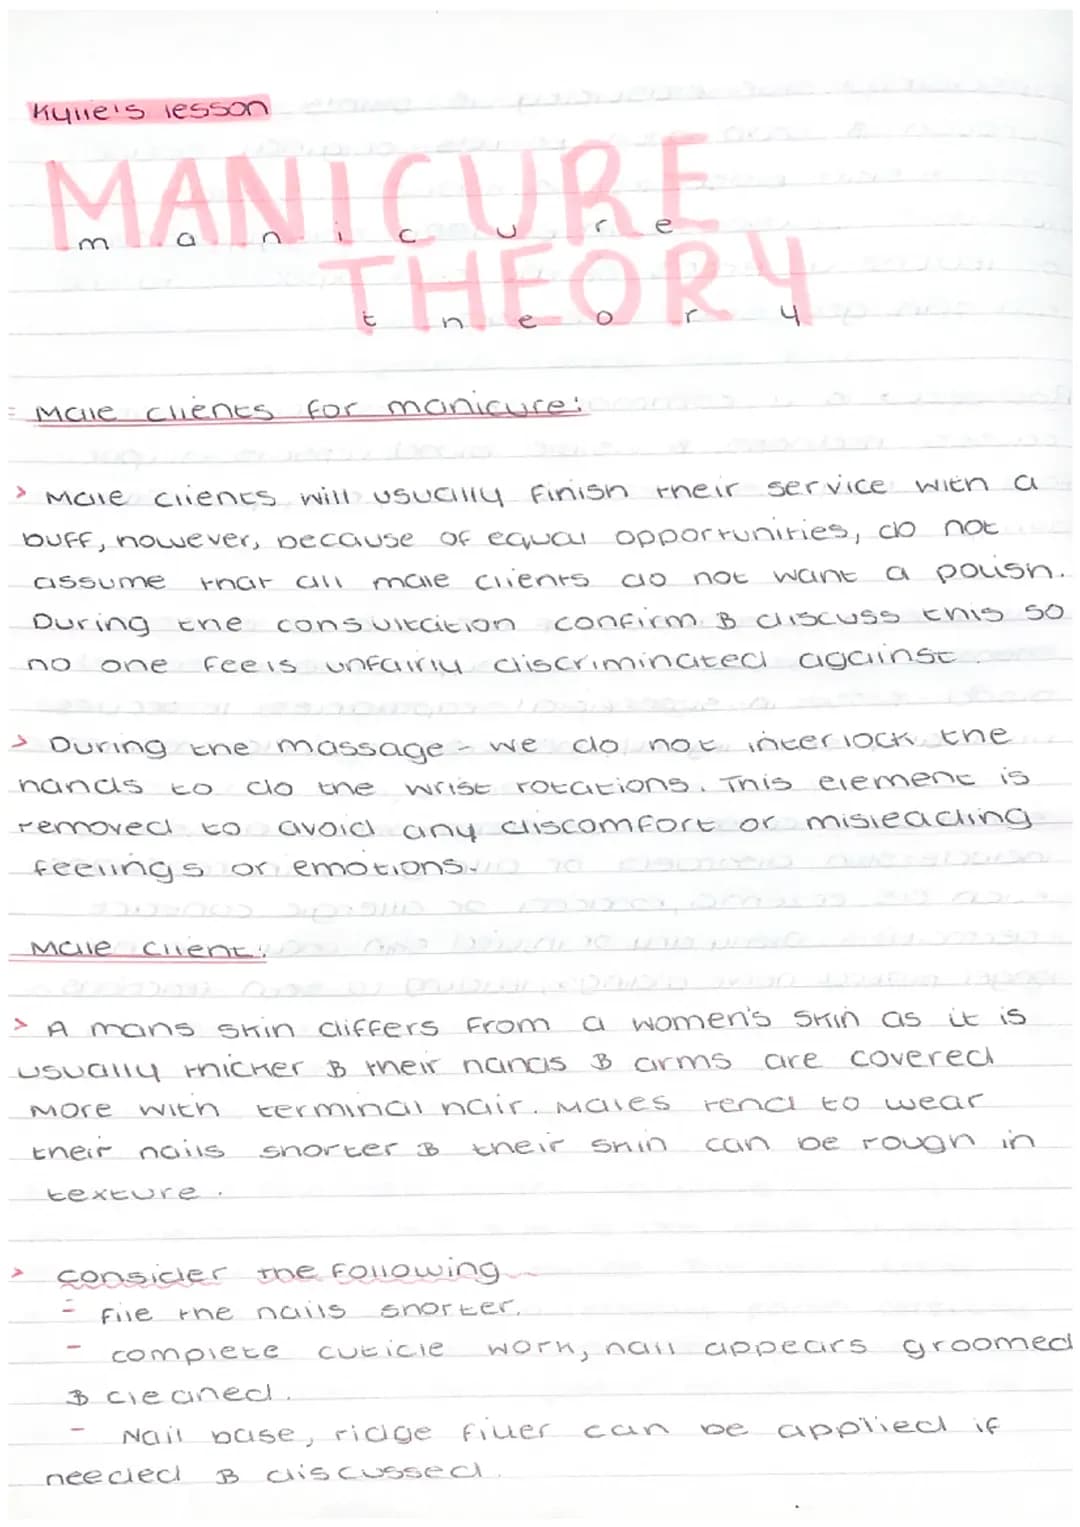 Kylie's lesson
MANICURE
manicure
THEORY
theory
Male clients for manicure:
> Male clients will usually finish their service with a
buff, however, because of equal opportunities, do not
assume that all male clients do not want a polish.
During the consultation confirm & discuss this so
no one feels unfairly discriminated against.
> During the massage - we do not interlock the
hands to do the wrist rotations. This element is
removed to avoid any discomfort or misleading
feelings or emotions.
Male client:
> A mans skin differs from a women's skin as it is
usually thicker & their hands & arms are covered
more with terminal hair. Males tend to wear
their nails shorter & their skin can be rough in
texture.
> consider the following
- file the nails shorter.
- complete cuticle work, nail appears groomed
& cleaned.
- Nail base, ridge filler can be applied if
needed & discussed.